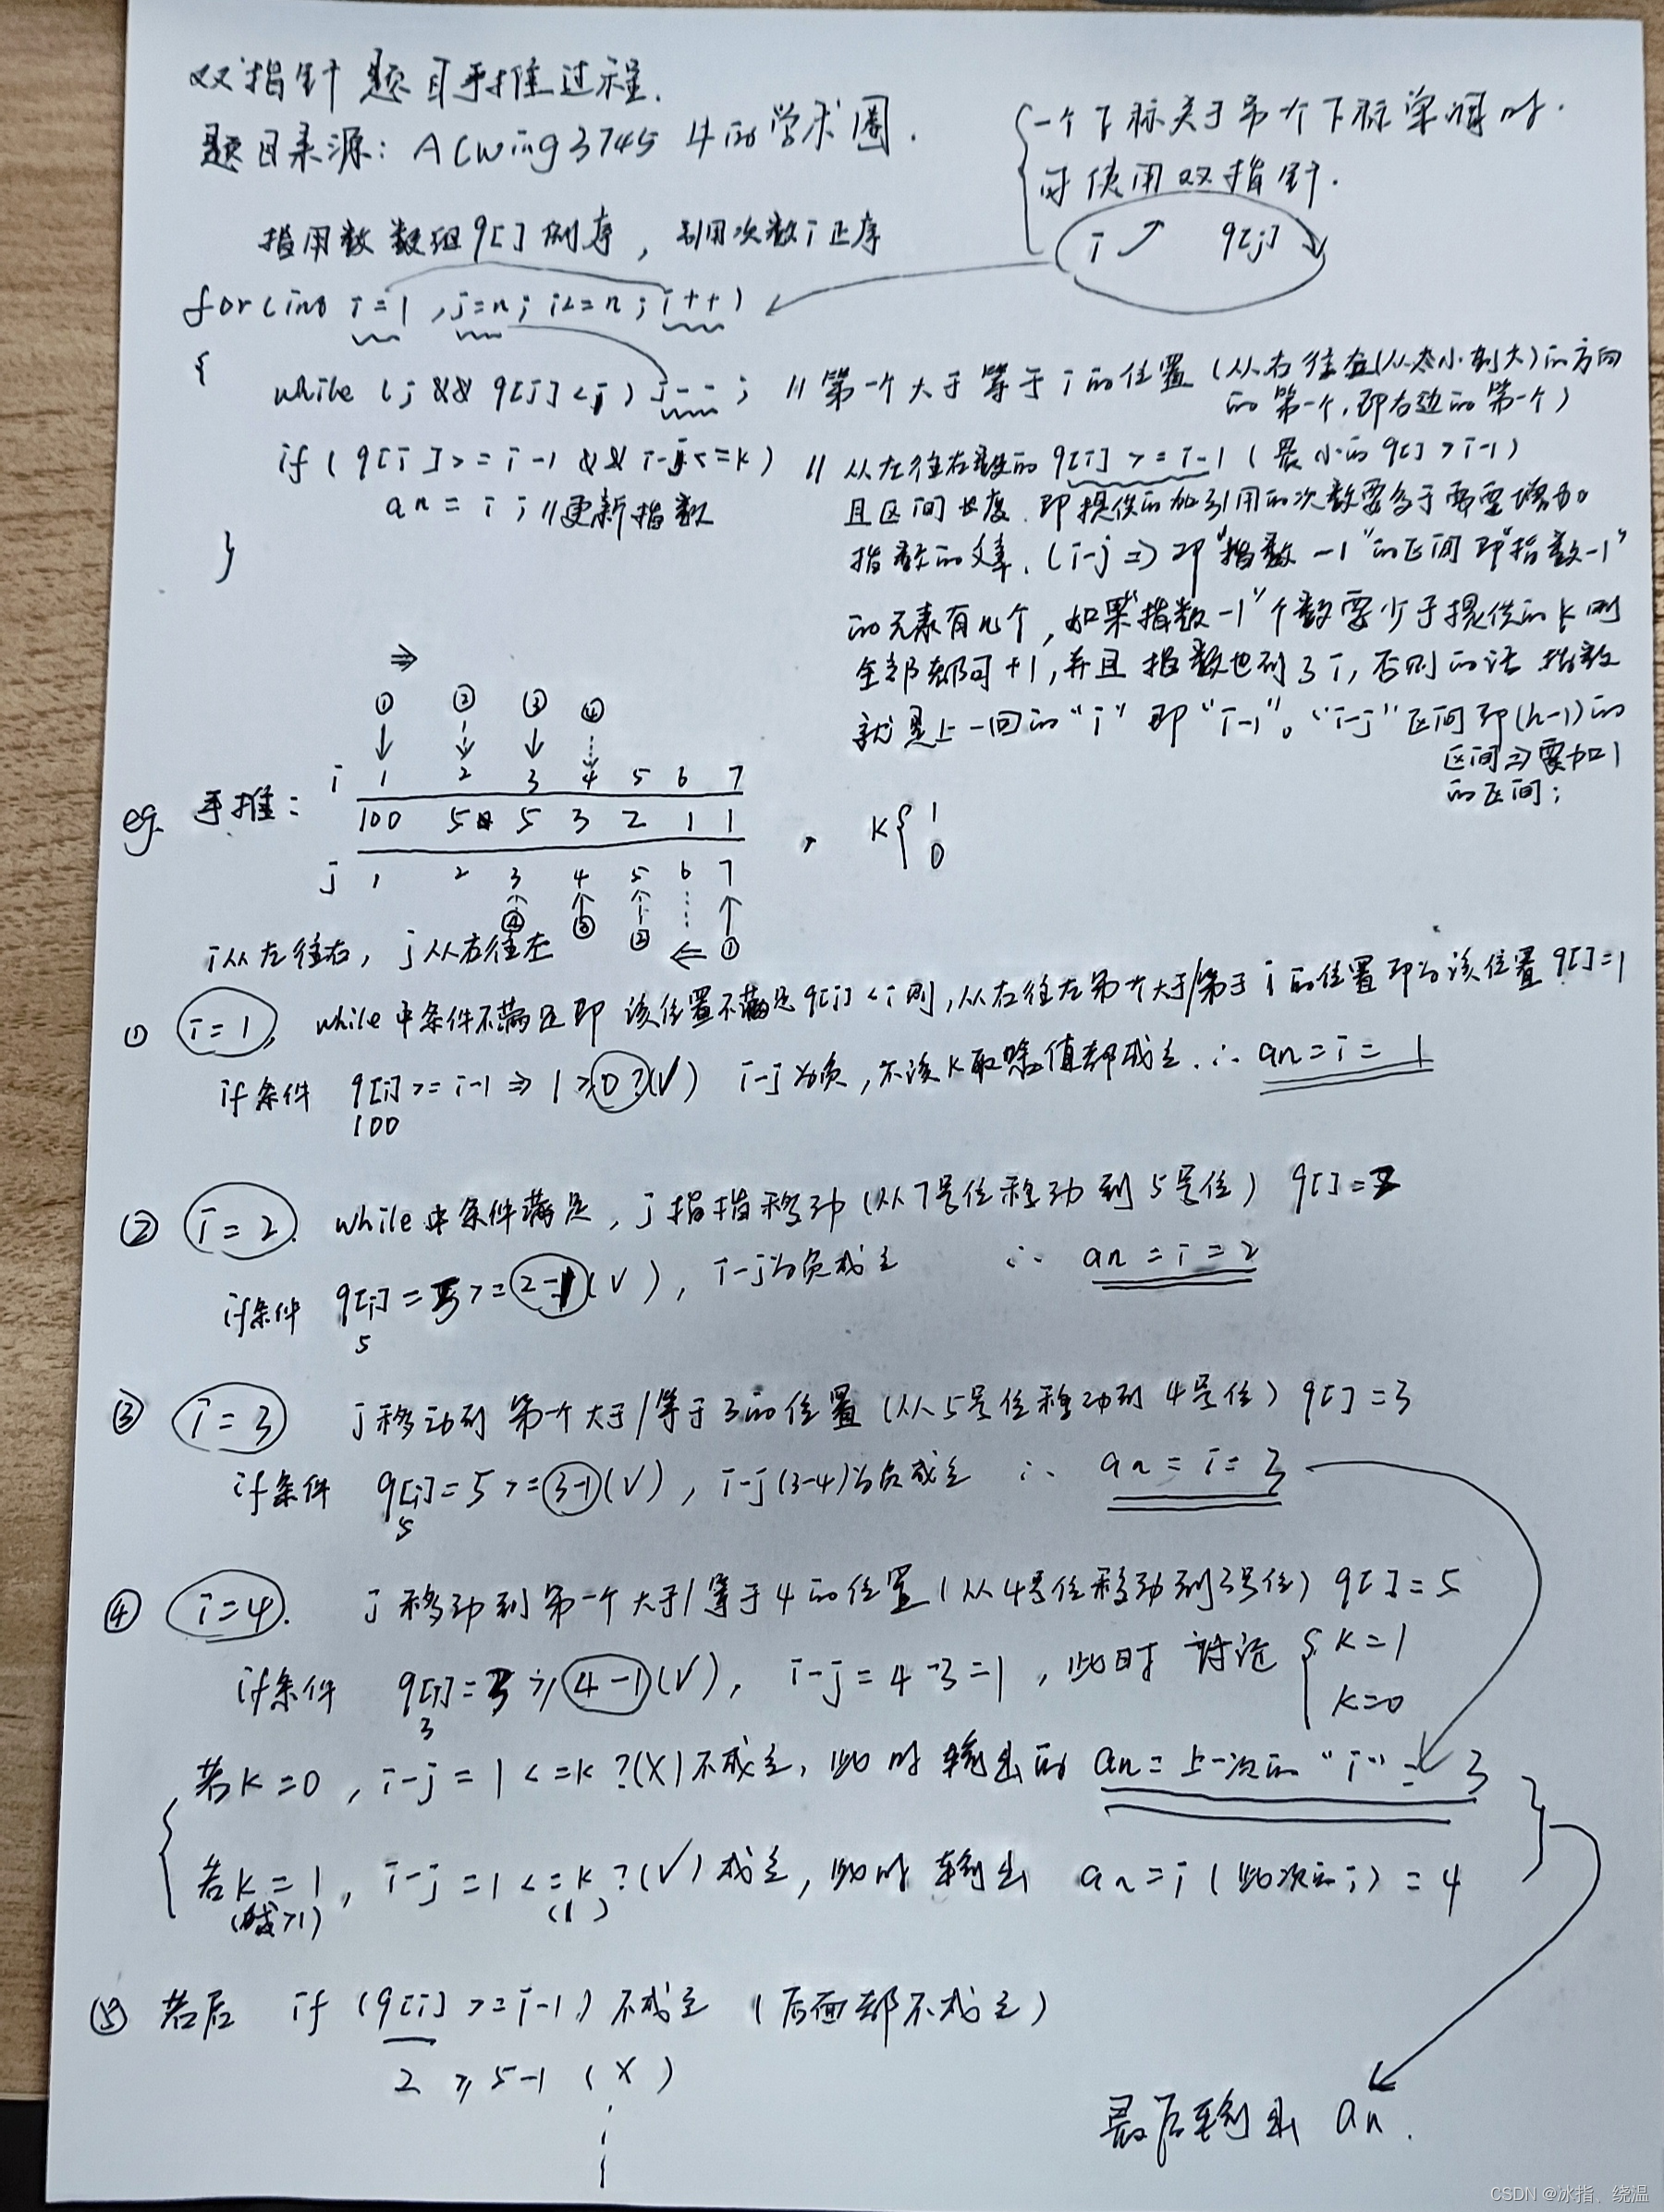 双指针题目手推过程.
题目来源: ACwing3745 牛的学术圈.
一个下标关于另一个下标单调时.
可使用双指针.
i ↗ q[j] ↘
指用数数组q[]倒序, 引用次数i正序
for(int i=1,j=n; i<=n; i++)
{
while (j && q[j]<i) j--; //第一个大于等于i的位置(从右往左(从小到大)的方向
的第一个,即右边的第一个)
if (q[i]>=i-1 && i-j<=k) // 从左往右数的q[i]>=i-1(最小的q[]>i-1)
an = i; //更新指数
且区间长度.即提供的加引用的次数要多于需要增加
}
指数的文章.(i-j⇒)即"指数-1"的区间即"指数-1"
的元素有几个,如果"指数-1"个数要少于提供的k则
全部都可+1,并且指数也到了i,否则的话 指数
就是上一回的"i"即"i-1"。"i-j"区间即(h-1)的
区间⇒要加1
的区间;
⇒
① ② ③ ④
i 1 2 3 4 5 6 7
eg. 手推: 100 5 5 3 2 1 1 , k{ 1 0
j 1 2 3 4 5 6 7
④ ③ ② ⇐ ①
i从左往右, j从右往左
① i=1, while中条件不满足即 该位置不满足q[j]<i则,从右往左第一个大于/等于i的位置即为该位置q[]=1
if条件 q[i]>=i-1⇒1>0?(√) i-j为负,不论k取啥值都成立.∴ an=i=1
100
② i=2. while中条件满足, j指指移动(从7号位移动到5号位) q[]=2
if条件 q[i]=5>=2-1(√), i-j为负成立 ∴ an=i=2
5
③ i=3 j移动到第一个大于/等于3的位置(从5号位移动到4号位) q[]=3
if条件 q[i]=5>=3-1(√), i-j(3-4)为负成立 ∴ an=i=3
5
④ i=4. j移动到第一个大于/等于4的位置(从4号位移动到3号位) q[]=5
if条件 q[i]=3≥4-1(√), i-j=4-3=1, 此时讨论 { k=1
3
k=0
若k=0, i-j=1<=k?(×)不成立, 此时输出的 an=上一次的"i"=3
若k=1, i-j=1<=k?(√)成立, 此时输出 an=i(此次的i)=4
(或>1) (1)
⑤ 若后 if (q[i]>=i-1)不成立 (后面都不成立)
2≥5-1 (×)
最后输出 an.
CSDN @冰指、绕温